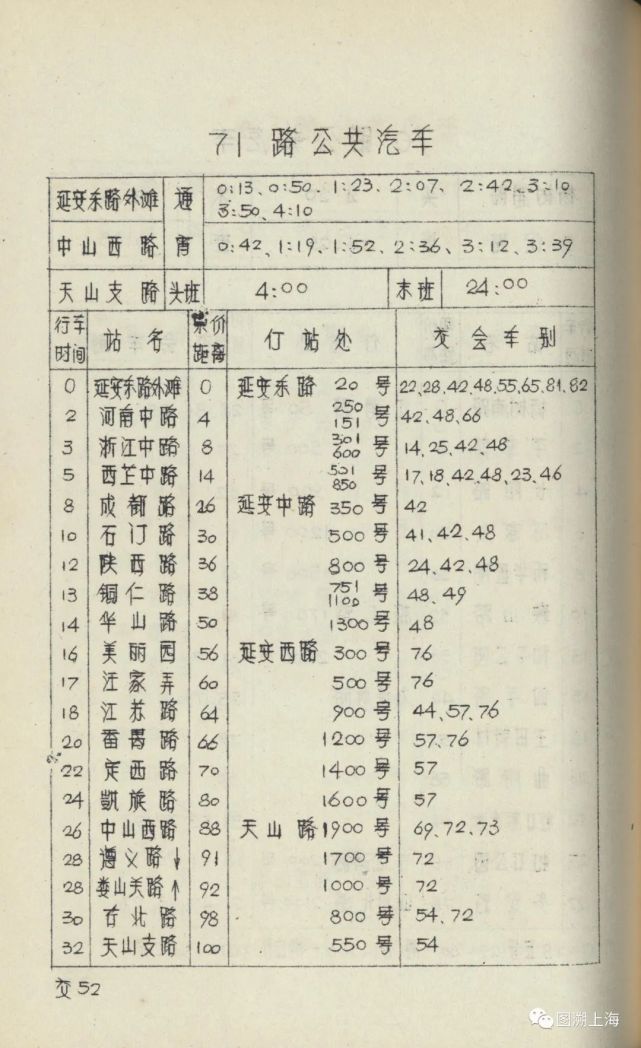 71 路公共汽车
延安东路外滩 通 0:13、0:50、1:23、2:07、2:42、3:10
3:50、4:10
中山西路 宵 0:42、1:19、1:52、2:36、3:12、3:39
天山支路 头班 4:00 末班 24:00
行车时间 站名 票价距离 仃站处 交会车别
0 延安东路外滩 0 延安东路 20 号 22、28、42、48、55、65、81、82
2 河南中路 4 250 151 号 42、48、66
3 浙江中路 8 301 600 号 14、25、42、48
5 西芷中路 14 501 850 号 17、18、42、48、23、46
8 成都路 26 延安中路 350 号 42
10 石门路 30 500 号 41、42、48
12 陕西路 36 800 号 24、42、48
13 铜仁路 38 751 1100 号 48、49
14 华山路 50 1300 号 48
16 美丽园 56 延安西路 300 号 76
17 汪家弄 60 500 号 76
18 江苏路 64 900 号 44、57、76
20 番禺路 66 1200 号 57、76
22 定西路 70 1400 号 57
24 凯旋路 80 1600 号 57
26 中山西路 88 天山路 1900 号 69、72、73
28 遵义路↓ 91 1700 号 72
28 娄山关路↑ 92 1000 号 72
30 古北路 98 800 号 54、72
32 天山支路 100 550 号 54
交 52
图溯上海